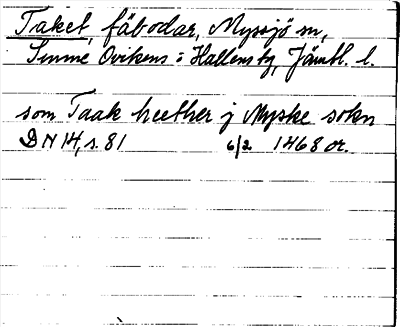 Taket, fäbodar, Myssjö sn,
Sunne Ovikens o Hallens tg, Jämtl. l.
som Taak heether j Myske sokn
DN 14, s. 81 6/2 1468 or.